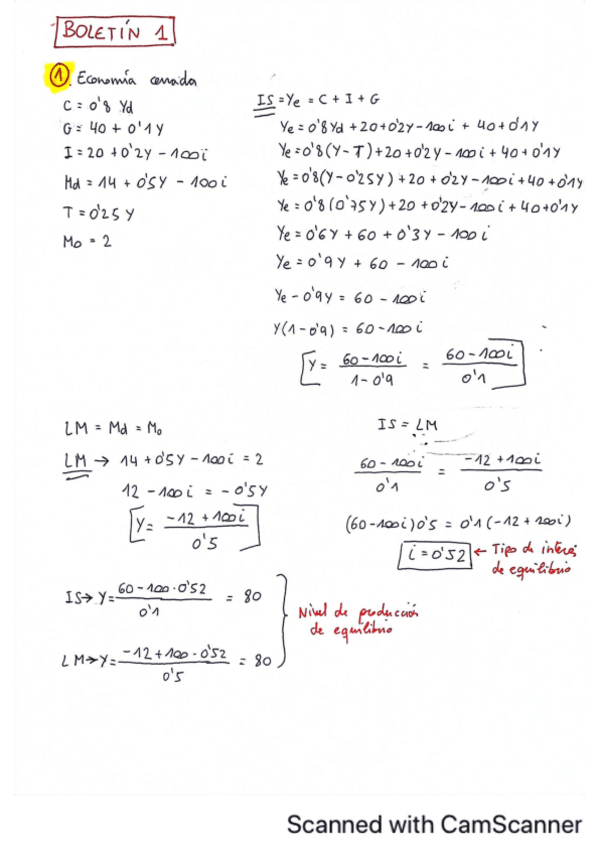 BOLETÍN 1
1. Economía cerrada
C = 0'8 Yd
G = 40 + 0'1Y
I = 20 + 0'2Y - 100i
Md = 14 + 0'5Y - 100i
T = 0'25Y
Mo = 2
IS = Ye = C + I + G
Ye = 0'8Yd + 20 + 0'2Y - 100i + 40 + 0'1Y
Ye = 0'8(Y - T) + 20 + 0'2Y - 100i + 40 + 0'1Y
Ye = 0'8(Y - 0'25Y) + 20 + 0'2Y - 100i + 40 + 0'1Y
Ye = 0'8(0'75Y) + 20 + 0'2Y - 100i + 40 + 0'1Y
Ye = 0'6Y + 60 + 0'3Y - 100i
Ye = 0'9Y + 60 - 100i
Ye - 0'9Y = 60 - 100i
Y(1 - 0'9) = 60 - 100i
Y = 60 - 100i / 1 - 0'9 = 60 - 100i / 0'1
LM = Md = Mo
LM → 14 + 0'5Y - 100i = 2
12 - 100i = - 0'5Y
Y = -12 + 100i / 0'5
IS = LM
60 - 100i / 0'1 = -12 + 100i / 0'5
(60 - 100i) 0'5 = 0'1 (-12 + 100i)
i = 0'52 ← Tipo de interés
de equilibrio
IS → Y = 60 - 100 · 0'52 / 0'1 = 80
LM → Y = -12 + 100 · 0'52 / 0'5 = 80
Nivel de producción
de equilibrio
Scanned with CamScanner